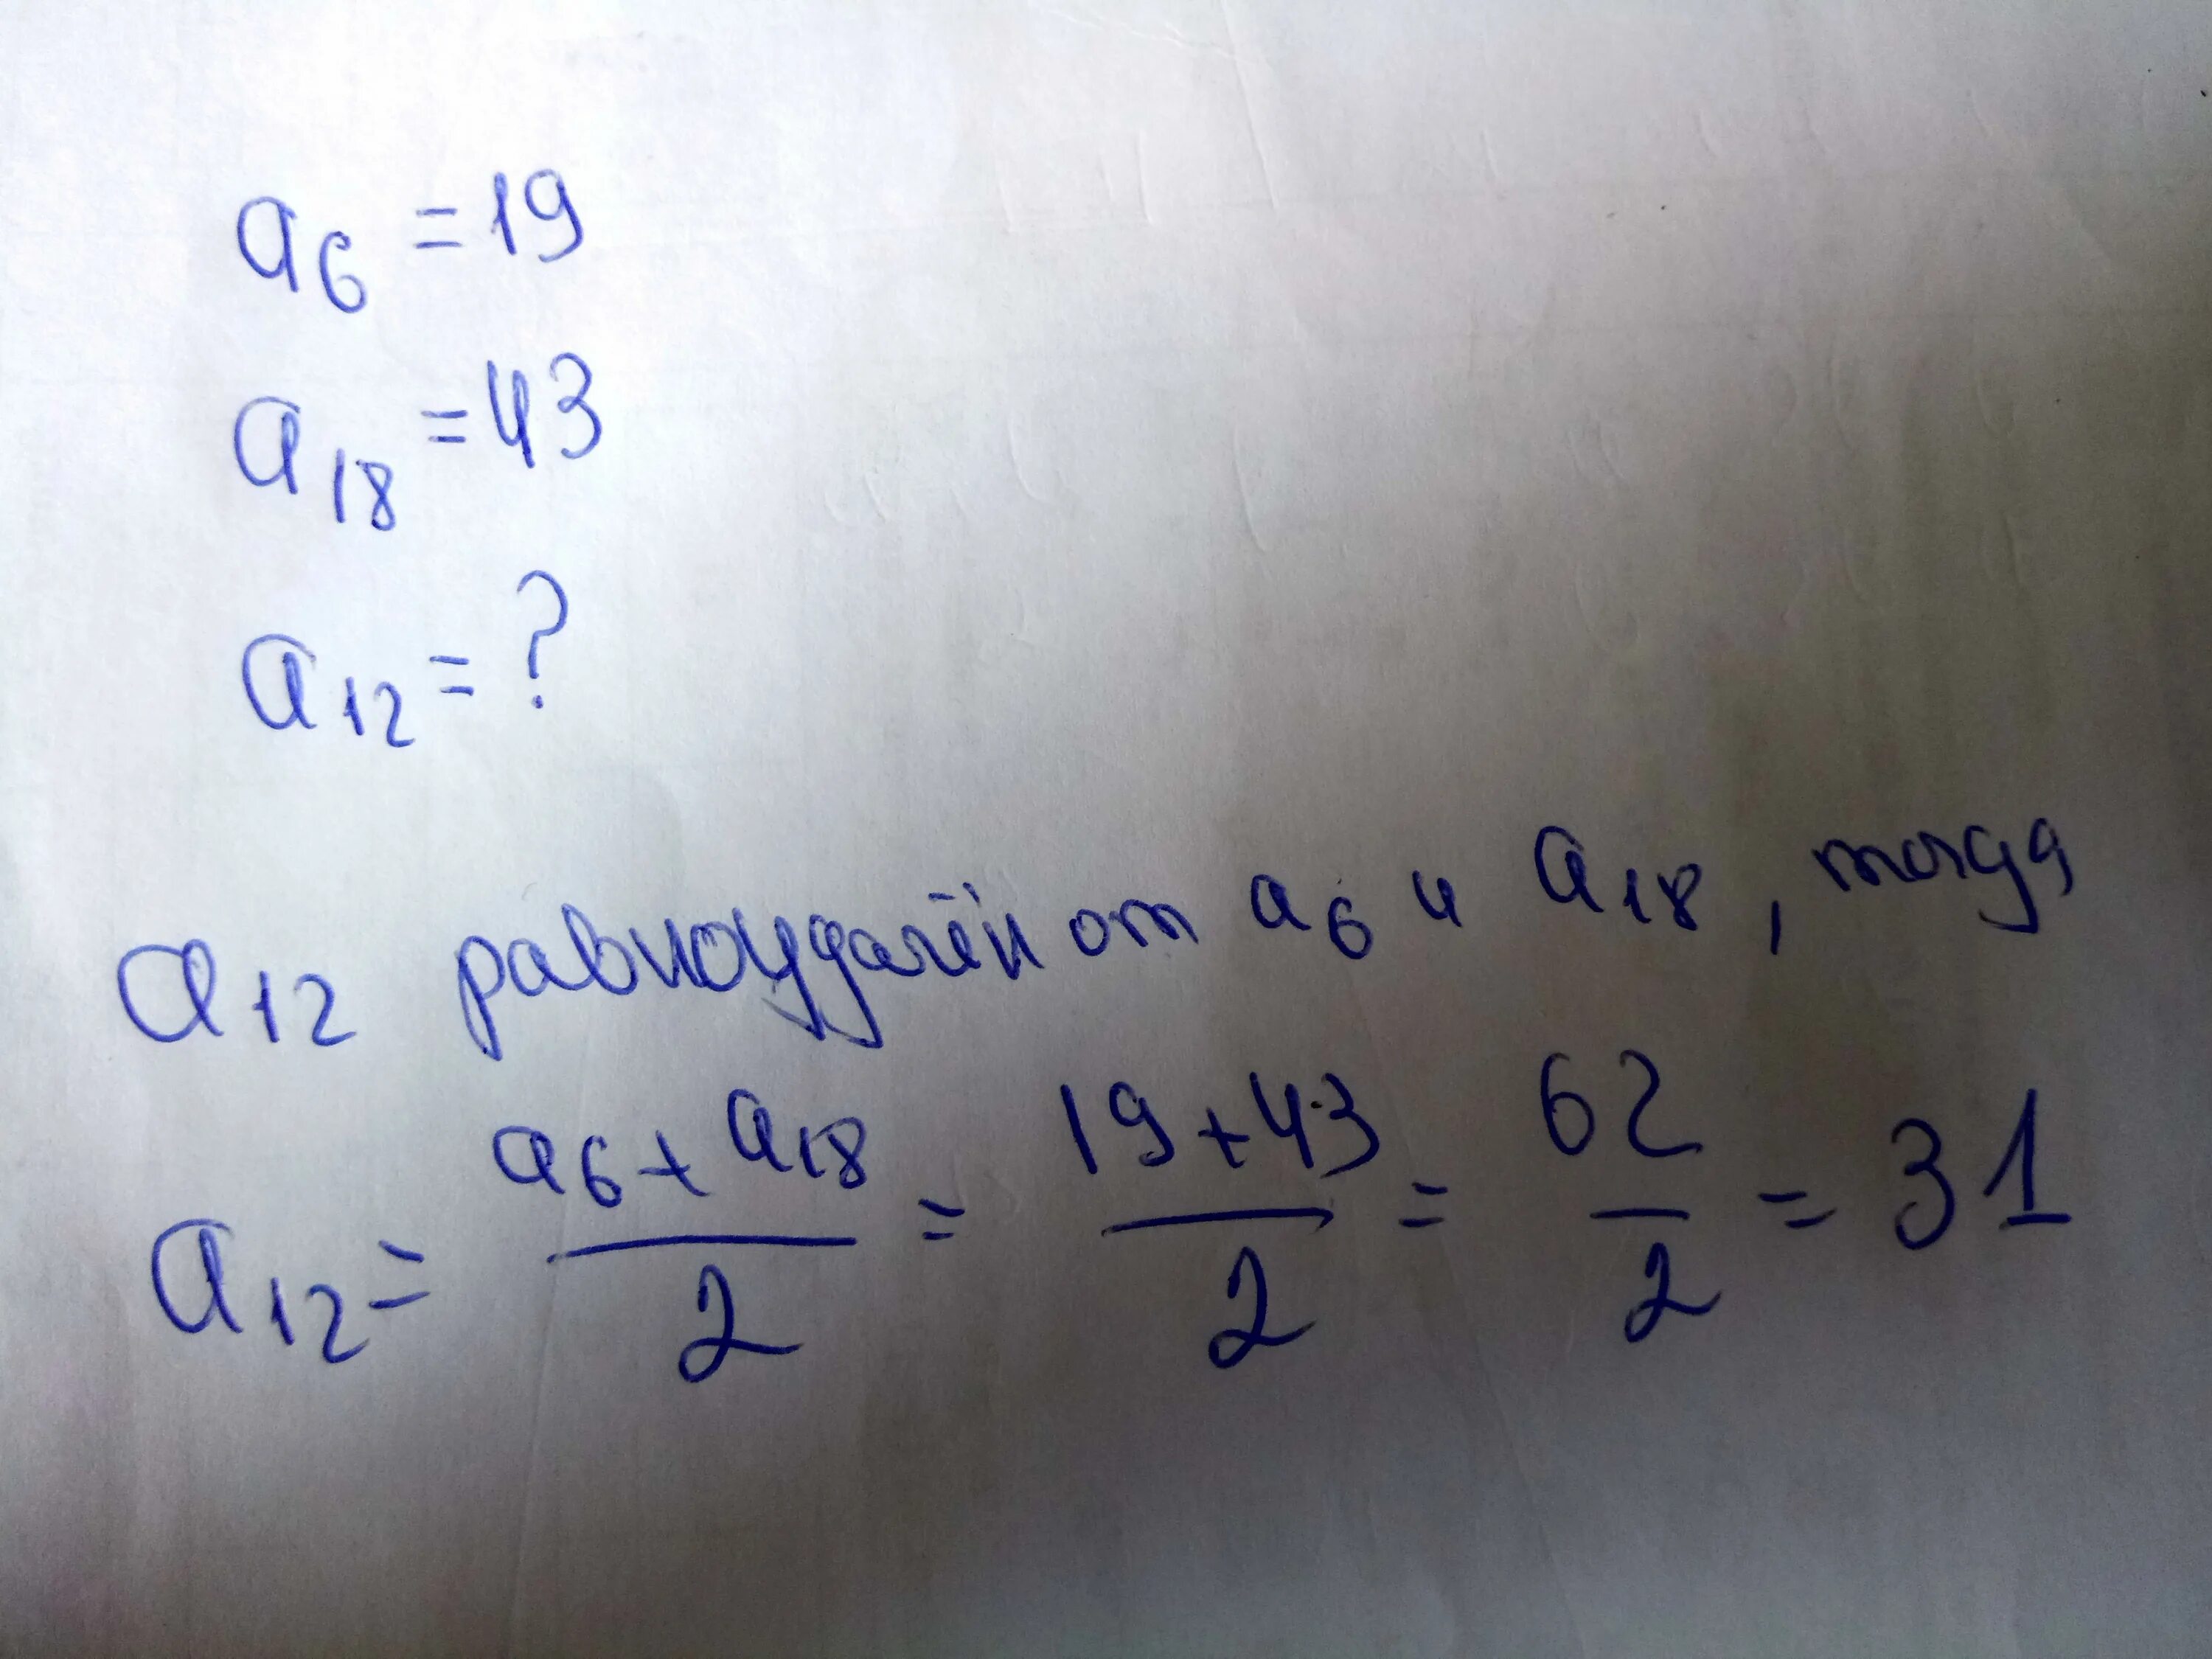 a₆ = 19
a₁₈ = 43
a₁₂ = ?
a₁₂ равноудалён от a₆ и a₁₈, тогда
a₁₂ = (a₆ + a₁₈)/2 = (19 + 43)/2 = 62/2 = 31